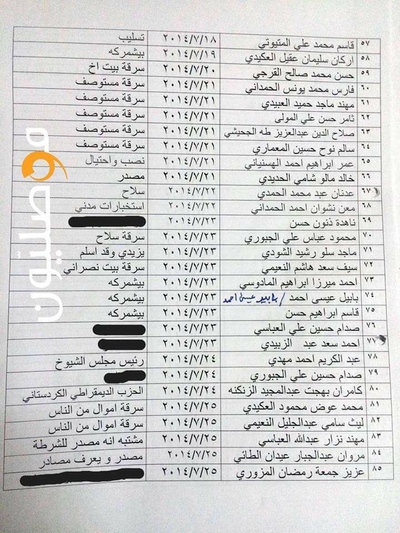 ٥٧ قاسم محمد علي المتيوتي ٢٠١٤/٧/١٨ تسليب
٥٨ اركان سليمان عقيل العكيدي ٢٠١٤/٧/١٩ بيشمركه
٥٩ حسن محمد صالح الفرجي ٢٠١٤/٧/٢٠ سرقة بيت اخ
٦٠ فارس محمد يونس الحمداني ٢٠١٤/٧/٢١ سرقة مستوصف
٦١ مهند ماجد حميد العبيدي ٢٠١٤/٧/٢١ سرقة مستوصف
٦٢ ثامر حسن علي المولى ٢٠١٤/٧/٢١ سرقة مستوصف
٦٣ صلاح الدين عبدالعزيز طه الجحيشي ٢٠١٤/٧/٢١ سرقة مستوصف
٦٤ سالم نوح حسين المعماري ٢٠١٤/٧/٢١ سرقة مستوصف
٦٥ عمر ابراهيم احمد الهسنياني ٢٠١٤/٧/٢١ نصب واحتيال
٦٦ خالد مالو شامي الحديدي ٢٠١٤/٧/٢١ مصدر
٦٧ عدنان عبد محمد الحمدي ٢٠١٤/٧/٢٢ سلاح
٦٨ معن نشوان احمد الحمداني ٢٠١٤/٧/٢٢ استخبارات مدني
٦٩ ناهدة ذنون حسن ٢٠١٤/٧/٢٣
٧٠ محمود عباس علي الجبوري ٢٠١٤/٧/٢٣ سرقة سلاح
٧١ ماجد سلو رشيد الشودي ٢٠١٤/٧/٢٣ يزيدي وقد اسلم
٧٢ سيف سعد هاشم النعيمي ٢٠١٤/٧/٢٣ سرقة بيت نصراني
٧٣ احمد ميرزا ابراهيم المادوسي ٢٠١٤/٧/٢٣ بيشمركه
٧٤ بابيل عيسى احمد / ٢٠١٤/٧/٢٣ بيشمركه
٧٥ قاسم ابراهيم حسن ٢٠١٤/٧/٢٣ بيشمركه
٧٦ صدام حسين علي العباسي ٢٠١٤/٧/٢٣
٧٧ احمد سعد عبد الزبيدي ٢٠١٤/٧/٢٣
٧٨ عبد الكريم احمد مهدي ٢٠١٤/٧/٢٤ رئيس مجلس الشيوخ
٧٩ صدام حسين علي الجبوري ٢٠١٤/٧/٢٤
٨٠ كامران بهجت عبدالمجيد الزنكنه ٢٠١٤/٧/٢٤ الحزب الديمقراطي الكردستاني
٨١ محمد عوض محمود العكيدي ٢٠١٤/٧/٢٥ سرقة اموال من الناس
٨٢ ليث سامي عبدالجليل النعيمي ٢٠١٤/٧/٢٥ سرقة اموال من الناس
٨٣ مهند نزار عبدالله العباسي ٢٠١٤/٧/٢٥ مشتبه انه مصدر للشرطة
٨٤ مروان عبدالجبار عيدان الطائي ٢٠١٤/٧/٢٥ مصدر و يعرف مصادر
٨٥ عزيز جمعة رمضان المزوري ٢٠١٤/٧/٢٥
موصليون